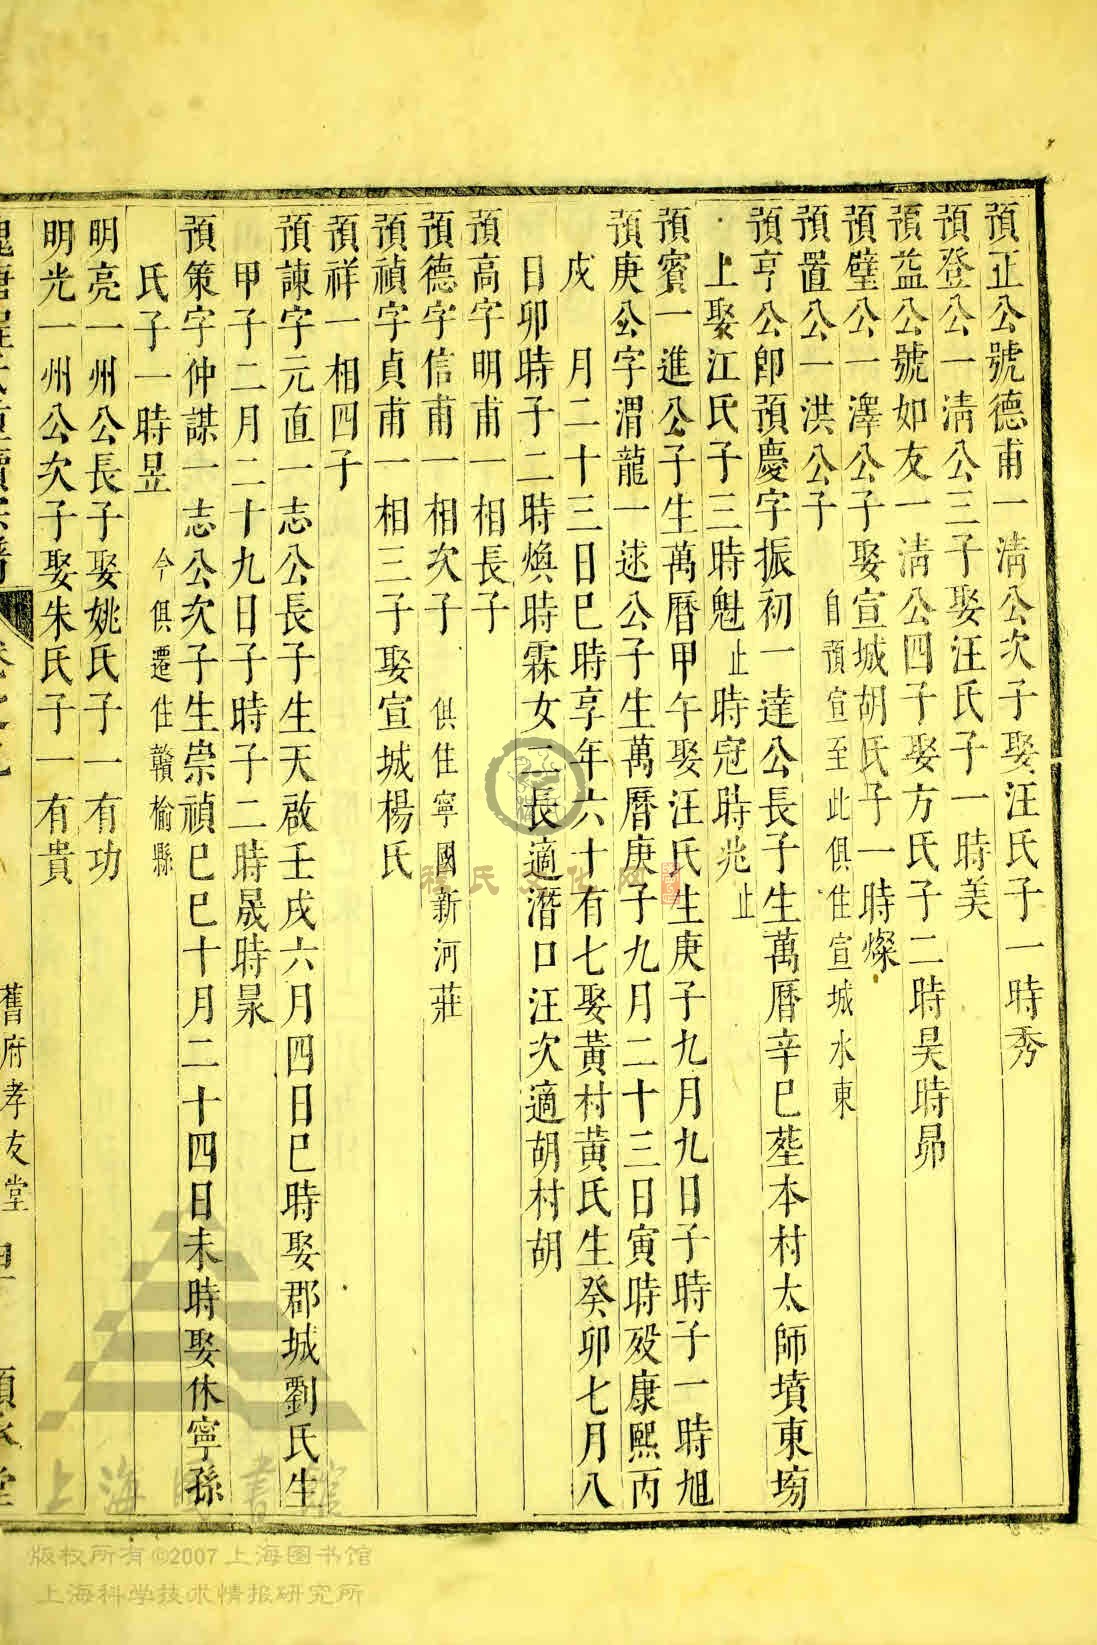 預正公號德甫一清公次子娶汪氏子一時秀
預登公一清公三子娶汪氏子一時美
預益公號如友一清公四子娶方氏子二時昊時昴
預璧公一澤公子娶宣城胡氏子一時燦
預置公一洪公子 自預宣至此俱住宣城水東
預亨公卽預慶字振初一達公長子生萬曆辛巳塟本村太師墳東塝
上娶江氏子三時魁止時㝎時兆止
預賓一進公子生萬曆甲午娶汪氏生庚子九月九日子時子一時旭
預庚公字渭龍一逑公子生萬曆庚子九月二十三日寅時殁康熙丙
戌 月二十三日巳時享年六十有七娶黃村黃氏生癸卯七月八
日卯時子二時煥時霖女二長適潛口汪次適胡村胡
預高字明甫一相長子
預德字信甫一相次子 俱住寧國新河莊
預禎字貞甫一相三子娶宣城楊氏
預祥一相四子
預諫字元直一志公長子生天啟壬戌六月四日巳時娶郡城劉氏生
甲子二月二十九日子時子二時晟時杲
預策字仲謀一志公次子生崇禎巳巳十月二十四日未時娶休寧孫
氏子一時昱 今俱遷住贛榆縣
明亮一州公長子娶姚氏子一有功
明光一州公次子娶朱氏子一有貴
舊府孝友堂
程氏文化网
上海圖書館
版权所有©2007上海图书馆
上海科学技术情报研究所